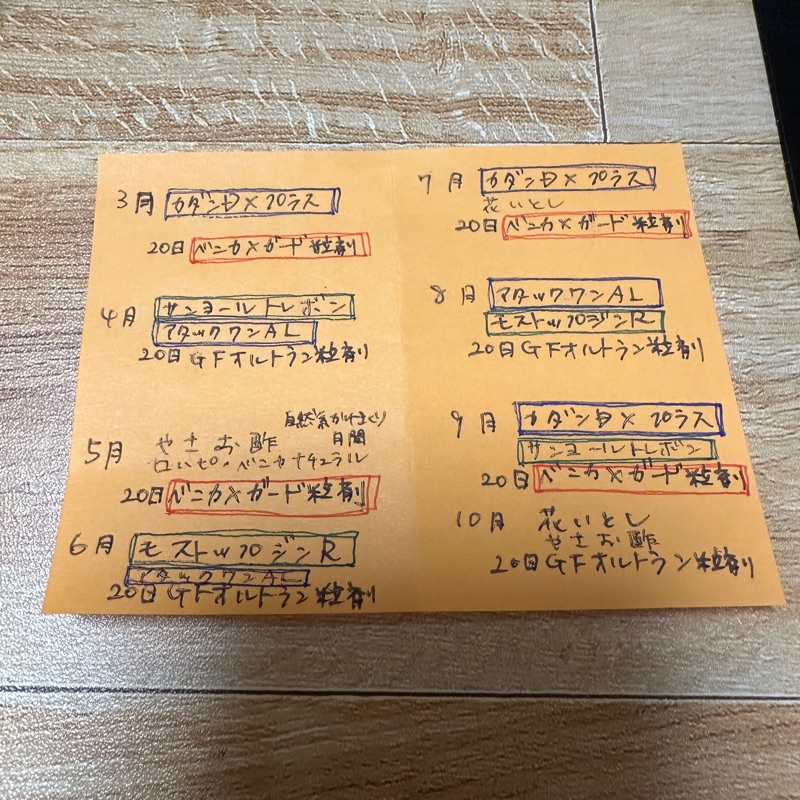 3月 カダンDXプラス
20日 ベニカXガード粒剤
4月 サンヨールトレボン
アタックワンAL
20日 GFオルトラン粒剤
自然系かけまくり
月間
5月 やさお酢
ロハピ・ベニカナチュラル
20日 ベニカXガード粒剤
6月 モストップジンR
アタックワンAL
20日 GFオルトラン粒剤
7月 カダンDXプラス
花いとし
20日 ベニカXガード粒剤
8月 アタックワンAL
モストップジンR
20日 GFオルトラン粒剤
9月 カダンDXプラス
サンヨールトレボン
20日 ベニカXガード粒剤
10月 花いとし
やさお酢
20日 GFオルトラン粒剤